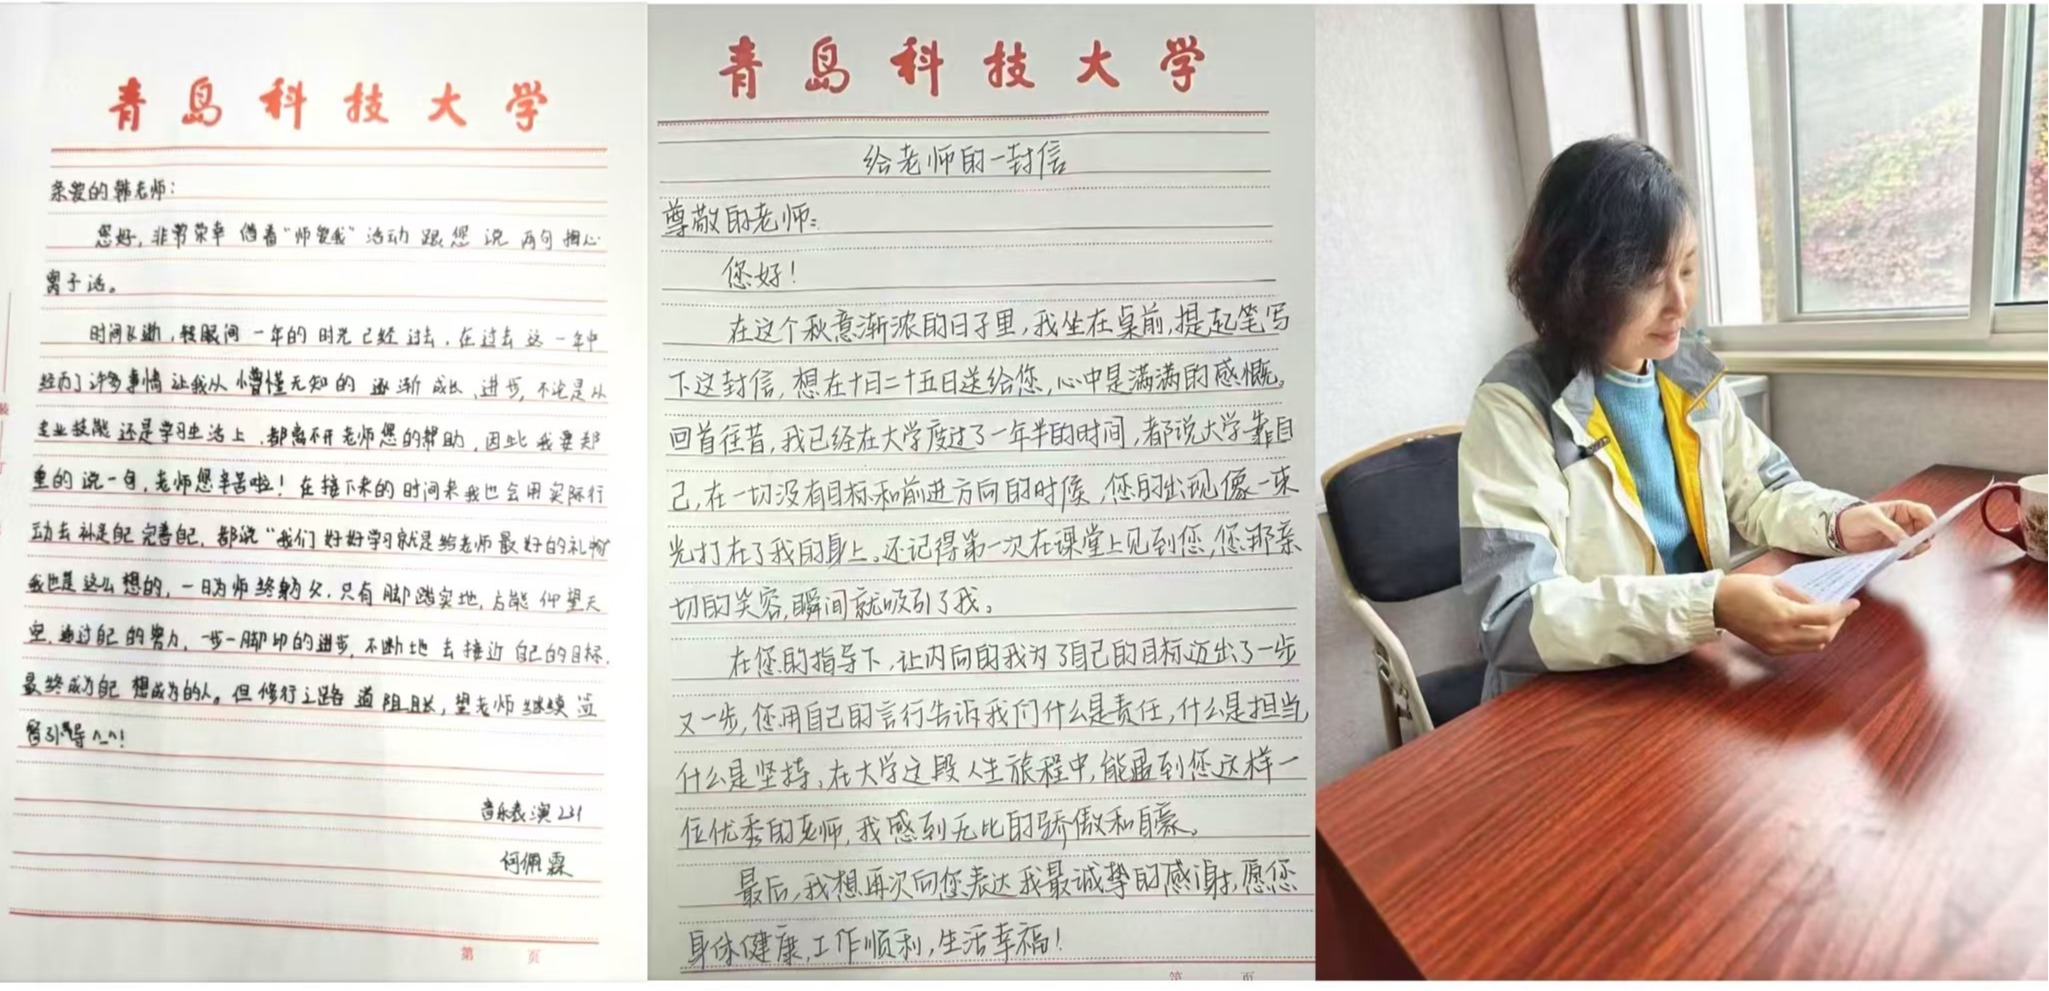 青岛科技大学
亲爱的韩老师：
您好，非常荣幸借着“师爱我”活动跟您说两句掏心
窝子话。
时间飞逝，转眼间一年的时光已经过去，在过去这一年中
经历了许多事情让我从懵懂无知的逐渐成长、进步，不论是从
专业技能还是学习生活上，都离不开老师您的帮助，因此我要郑
重的说一句，老师您辛苦啦！在接下来的时间来我也会用实际行
动去补足自己完善自己，都说“我们好好学习就是给老师最好的礼物”
我也是这么想的，一日为师终身为父，只有脚踏实地，方能仰望天
空，通过自己的努力，一步一脚印的进步，不断地去接近自己的目标，
最终成为自己想成为的人。但修行之路道阻且长，望老师继续监
督引导^_^！
音乐表演231
何佩霖
第 页
青岛科技大学
给老师的一封信
尊敬的老师：
您好！
在这个秋意渐浓的日子里，我坐在桌前，提起笔写
下这封信，想在十月二十五日送给您，心中是满满的感慨。
回首往昔，我已经在大学度过了一年半的时间，都说大学靠自
己，在一切没有目标和前进方向的时候，您的出现像一束
光打在了我的身上。还记得第一次在课堂上见到您，您那亲
切的笑容，瞬间就吸引了我。
在您的指导下，让内向的我为了自己的目标迈出了一步
又一步，您用自己的言行告诉我们什么是责任，什么是担当，
什么是坚持，在大学这段人生旅程中，能遇到您这样一
位优秀的老师，我感到无比的骄傲和自豪。
最后，我想再次向您表达我最诚挚的感谢，愿您
身体健康，工作顺利，生活幸福！
第 页